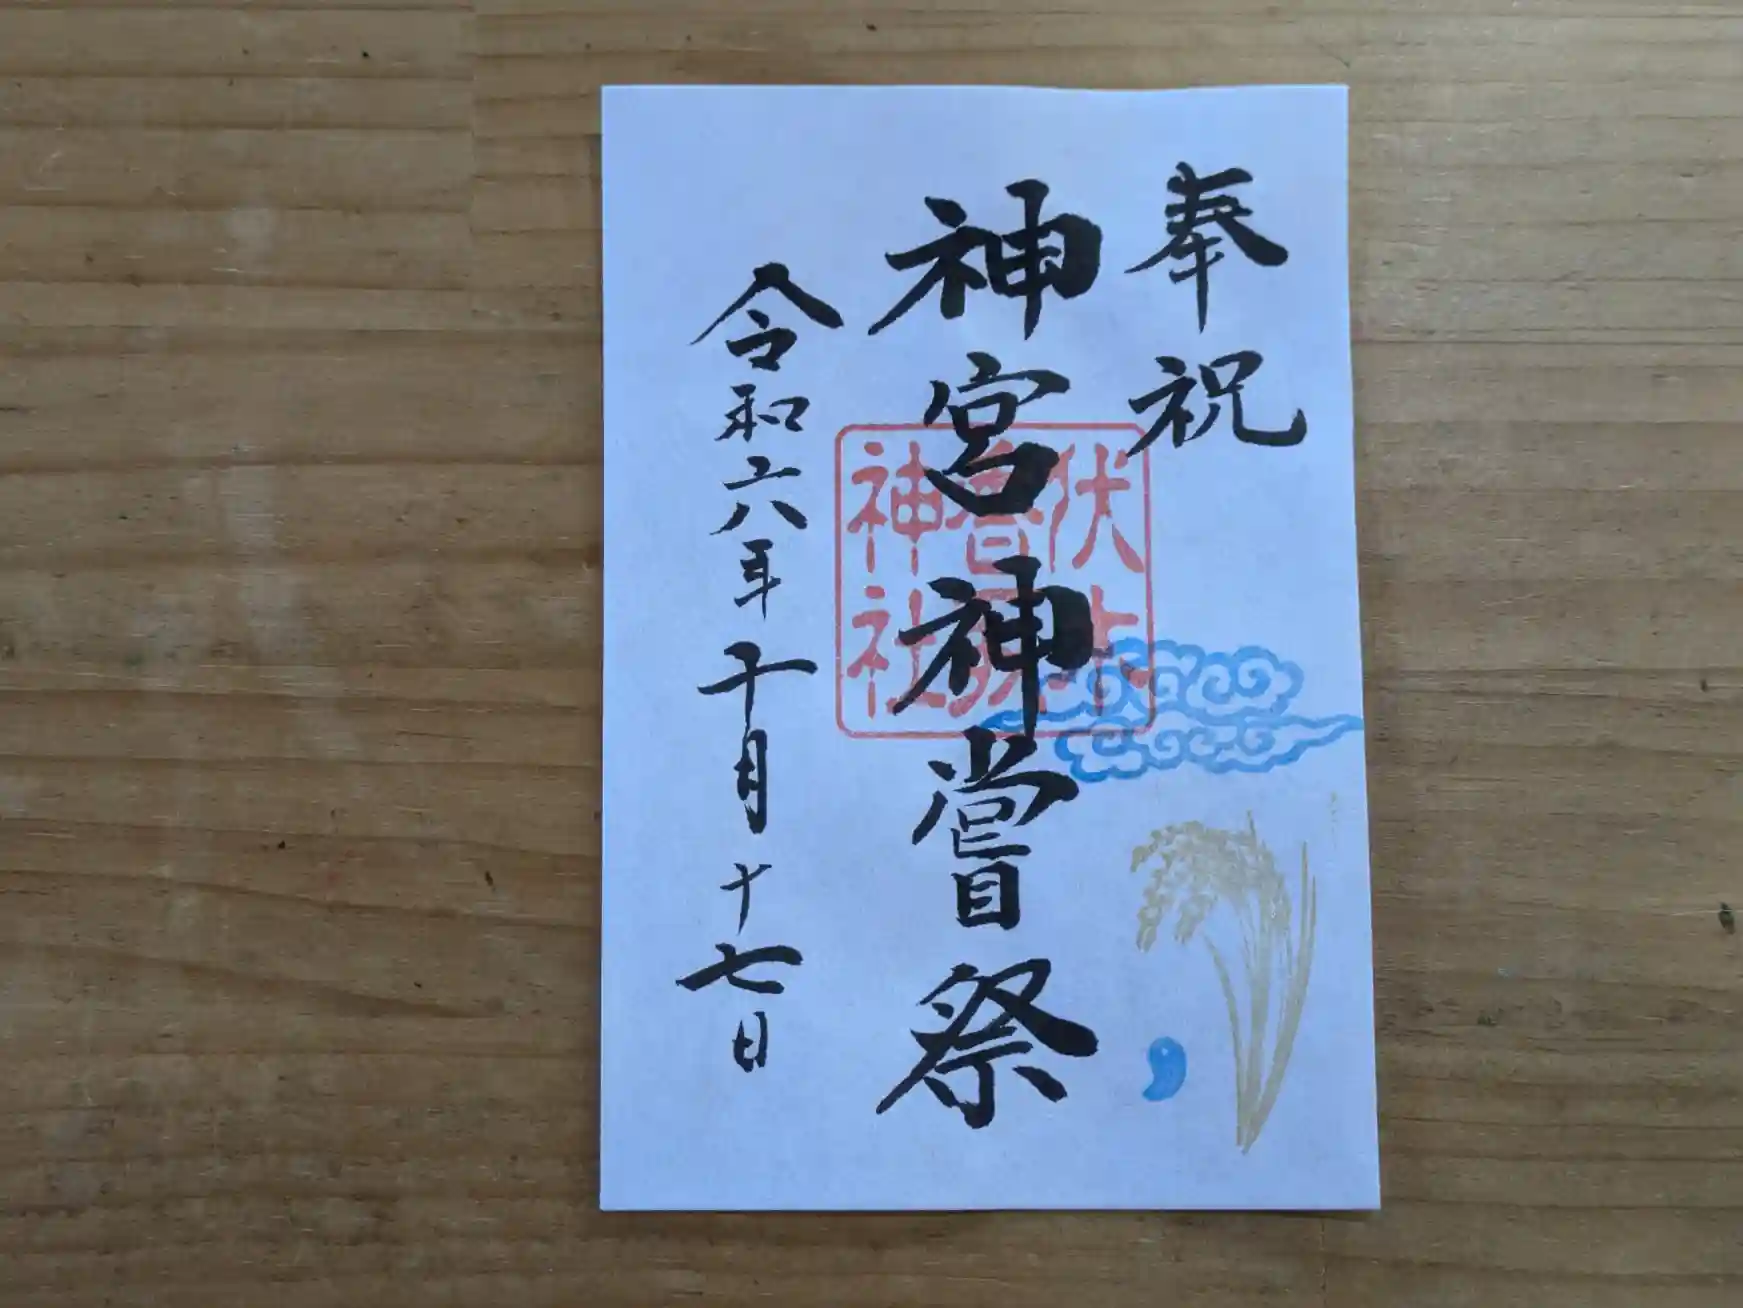 奉祝
神宮神嘗祭
令和六年十月十七日
伏木
香取
神社